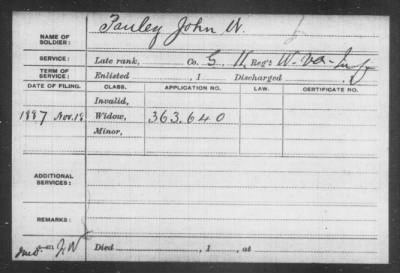 NAME OF SOLDIER: Pauley John W.
SERVICE: Late rank, Co. G. 11 Reg't W. Va. Inf
TERM OF SERVICE: Enlisted , 1 Discharged , 1
DATE OF FILING. CLASS. APPLICATION NO. LAW. CERTIFICATE NO.
Invalid,
1887 Nov. 18 Widow, 363.640
Minor,
ADDITIONAL SERVICES:
REMARKS:
J.W Died , 1 , at